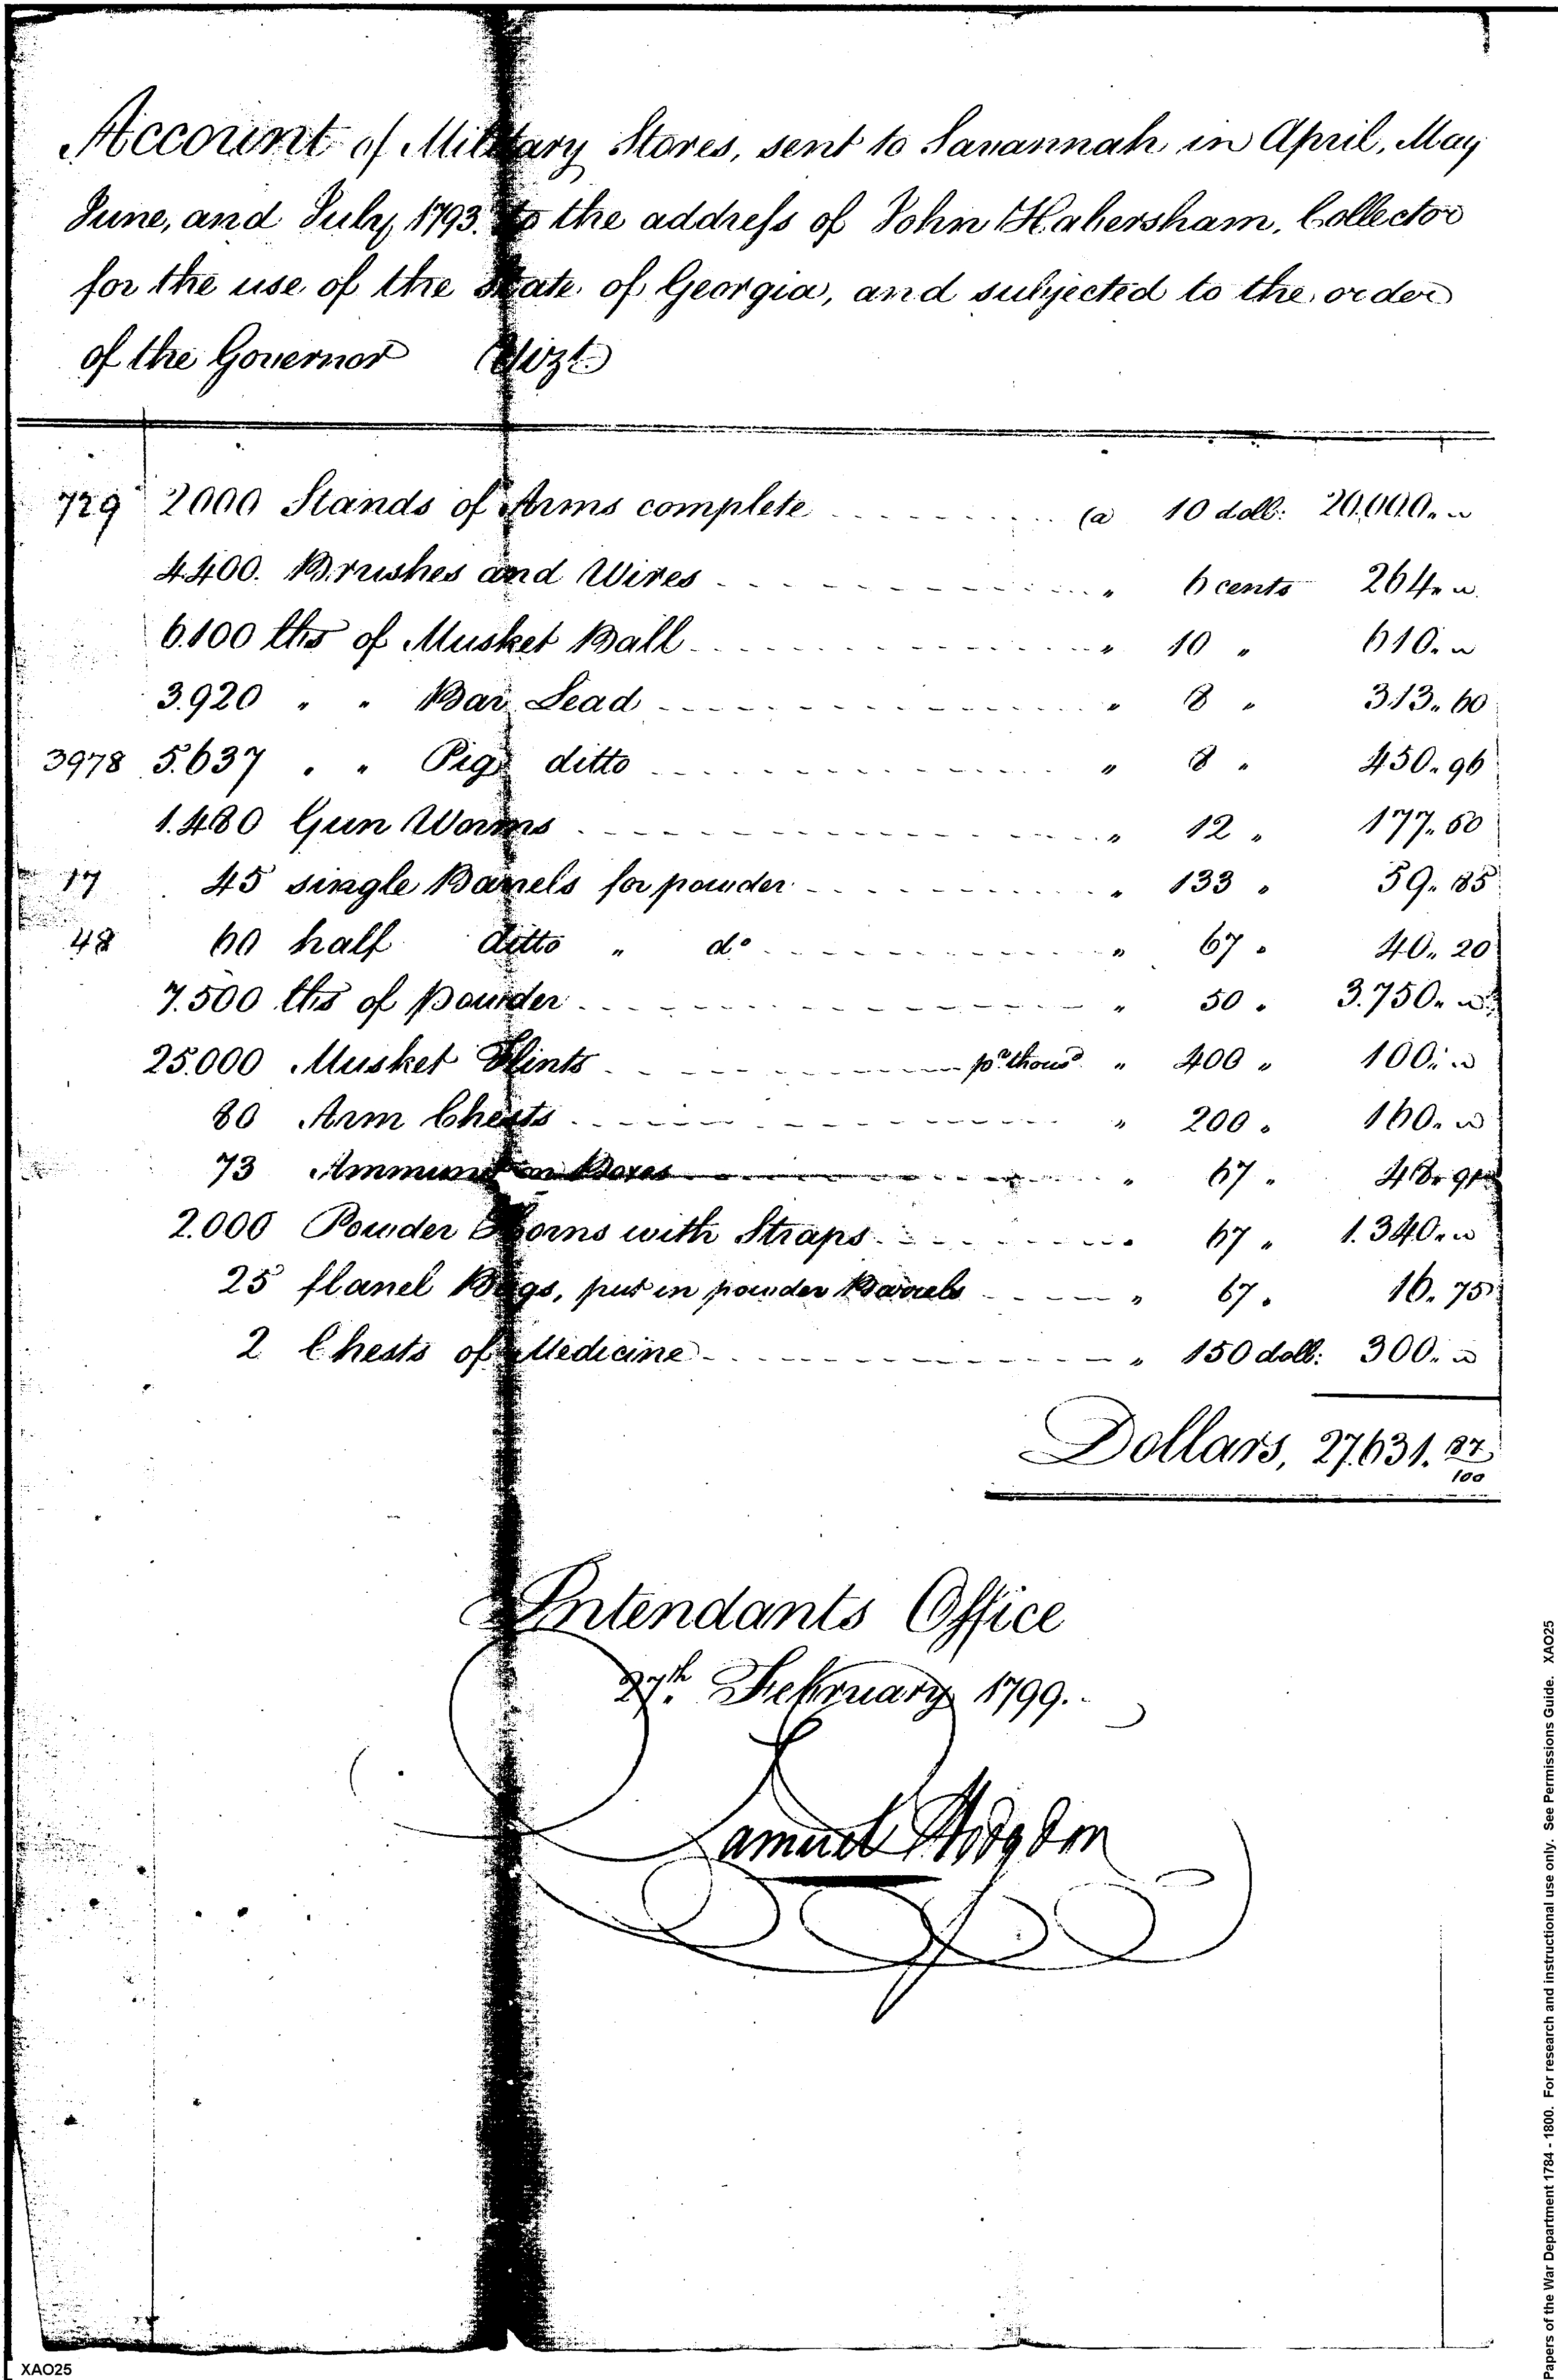 Account of Military Stores, sent to Savannah in April, May
June, and July, 1793. to the address of John Habersham, Collector
for the use of the State of Georgia, and subjected to the order
of the Governor (Vizt.)
729 2000 Stands of Arms complete (a 10 doll: 20.000. "
4.400. Brushes and Wires " 6 cents 264. "
6.100 lbs of Musket Ball " 10 " 610. "
3.920 " " Bar Lead " 8 " 313. 60
3978 5.637 " " Pig ditto " 8 " 450. 96
1.480 Gun Worms " 12 " 177. 60
17 45 single Barrels for powder " 133 " 59. 85
48 60 half ditto " do " 67 " 40. 20
7.500 lbs of powder " 50 " 3.750. "
25.000 Musket Flints pr. thousd " 400 " 100. "
80 Arm Chests " 200 " 160. "
73 Ammunition Boxes " 67 " 48. 91
2.000 Powder Horns with Straps " 67 " 1.340. "
25 flanel Bags, put in powder Barrels " 67 " 16. 75
2 Chests of Medicine " 150 doll: 300. "
Dollars, 27.631. 87/100
Intendants Office
27th. February 1799.
Samuel Hodgdon
XAO25
Papers of the War Department 1784 - 1800. For research and instructional use only. See Permissions Guide. XAO25